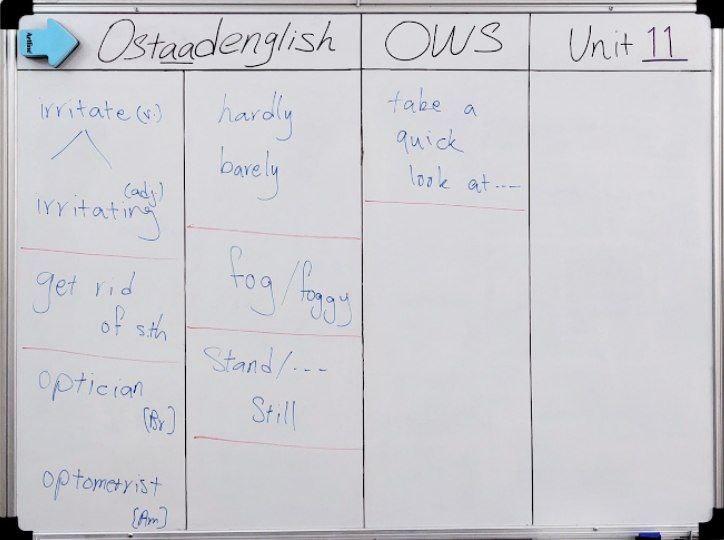 Ostaadenglish
OWS
Unit 11
irritate (v.)
(adj)
irritating
get rid
of s.th
optician
[Br]
optometrist
[Am]
hardly
barely
fog / foggy
Stand / ---
Still
take a
quick
look at ---